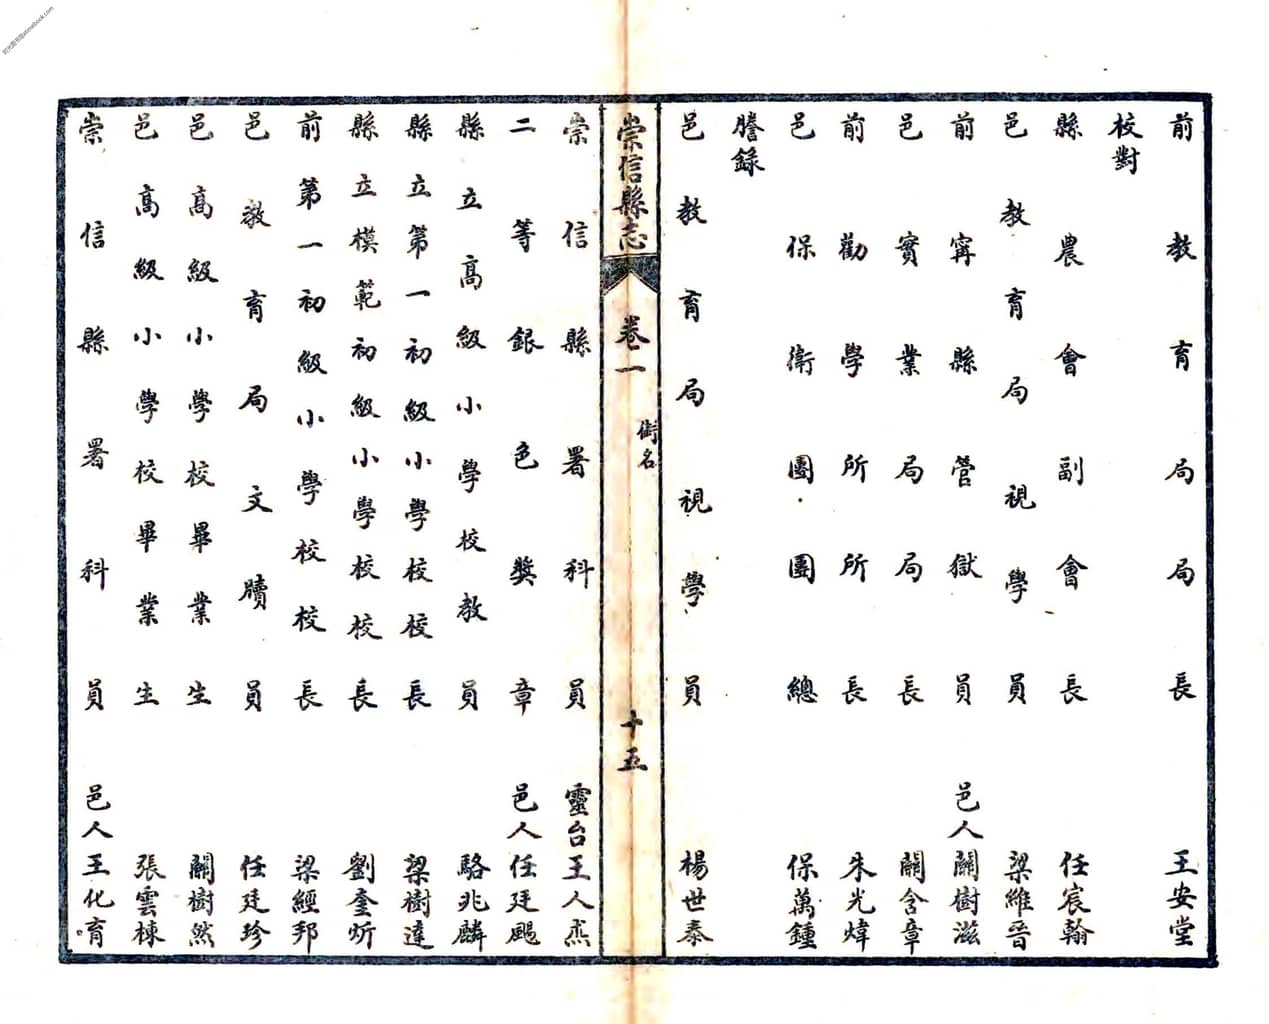 前教育局局長 王安堂
校對
縣農會副會長 任宸翰
邑教育局視學員 梁維晉
前甯縣管獄員 邑人關樹滋
邑實業局局長 關含章
前勸學所所長 朱光煒
邑保衛團團總 保萬鍾
謄錄
邑教育局視學員 楊世泰
崇信縣志 卷一 銜名 十五
崇信縣署科員 靈台王人烝
二等銀色獎章 邑人任廷颺
縣立高級小學校教員 駱兆麟
縣立第一初級小學校校長 梁樹達
縣立模範初級小學校校長 劉奎炘
前第一初級小學校校長 梁經邦
邑教育局文牘員 任廷珍
邑高級小學校畢業生 關樹然
邑高級小學校畢業生 張雲棟
崇信縣署科員 邑人王化育